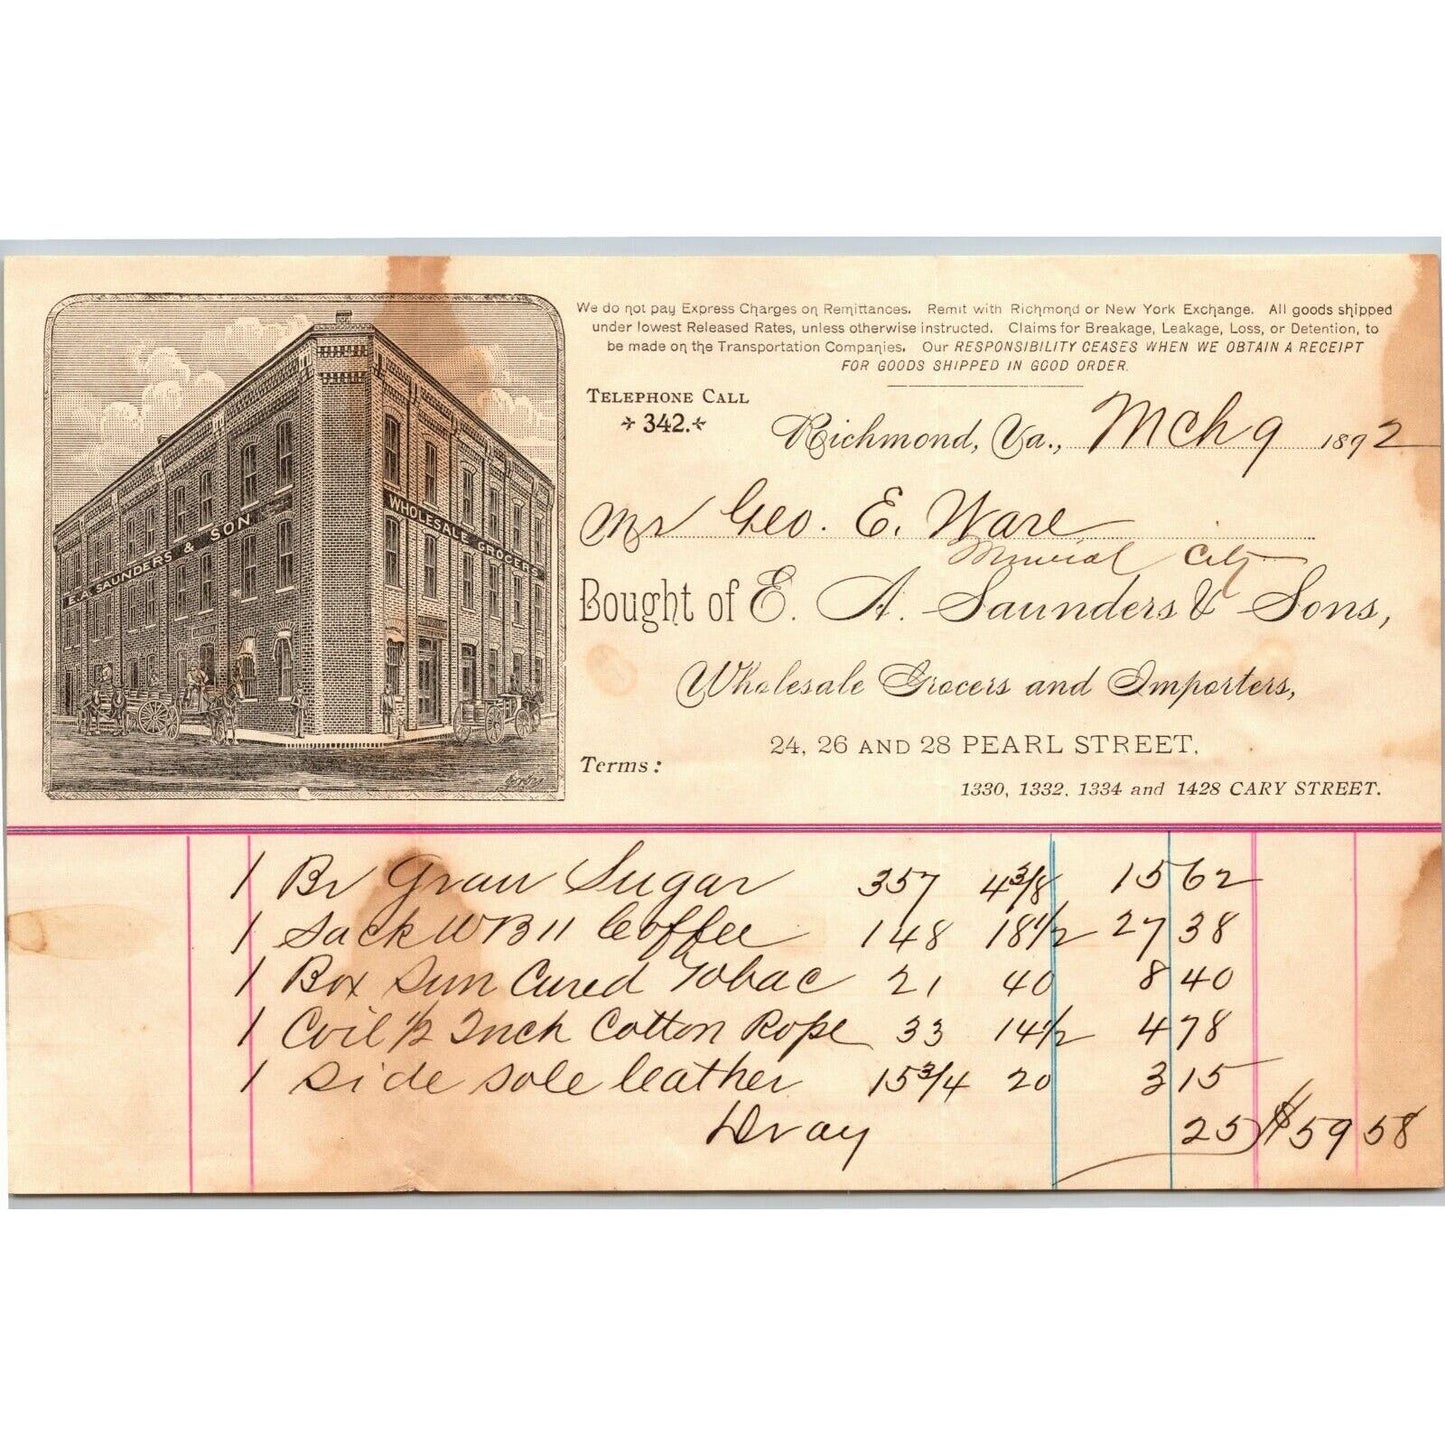 E. A. SAUNDERS & SON
WHOLESALE GROCERS
We do not pay Express Charges on Remittances. Remit with Richmond or New York Exchange. All goods shipped
under lowest Released Rates, unless otherwise instructed. Claims for Breakage, Leakage, Loss, or Detention, to
be made on the Transportation Companies. Our RESPONSIBILITY CEASES WHEN WE OBTAIN A RECEIPT
FOR GOODS SHIPPED IN GOOD ORDER.
TELEPHONE CALL
342.
Richmond, Va., Mch 9 1892
Mr Geo. E. Ware
City
Bought of E. A. Saunders & Sons,
Wholesale Grocers and Importers,
24, 26 AND 28 PEARL STREET.
Terms:
1330, 1332, 1334 and 1428 CARY STREET.
1 Br Gran Sugar 357 4 3/8 15 62
1 Sack WB 11 Coffee 148 18 1/2 27 38
1 Box Sun Cured Tobac 21 40 8 40
1 Coil 1/2 Inch Cotton Rope 33 14 1/2 4 78
1 Side sole leather 15 3/4 20 3 15
Dray 25 $59 58